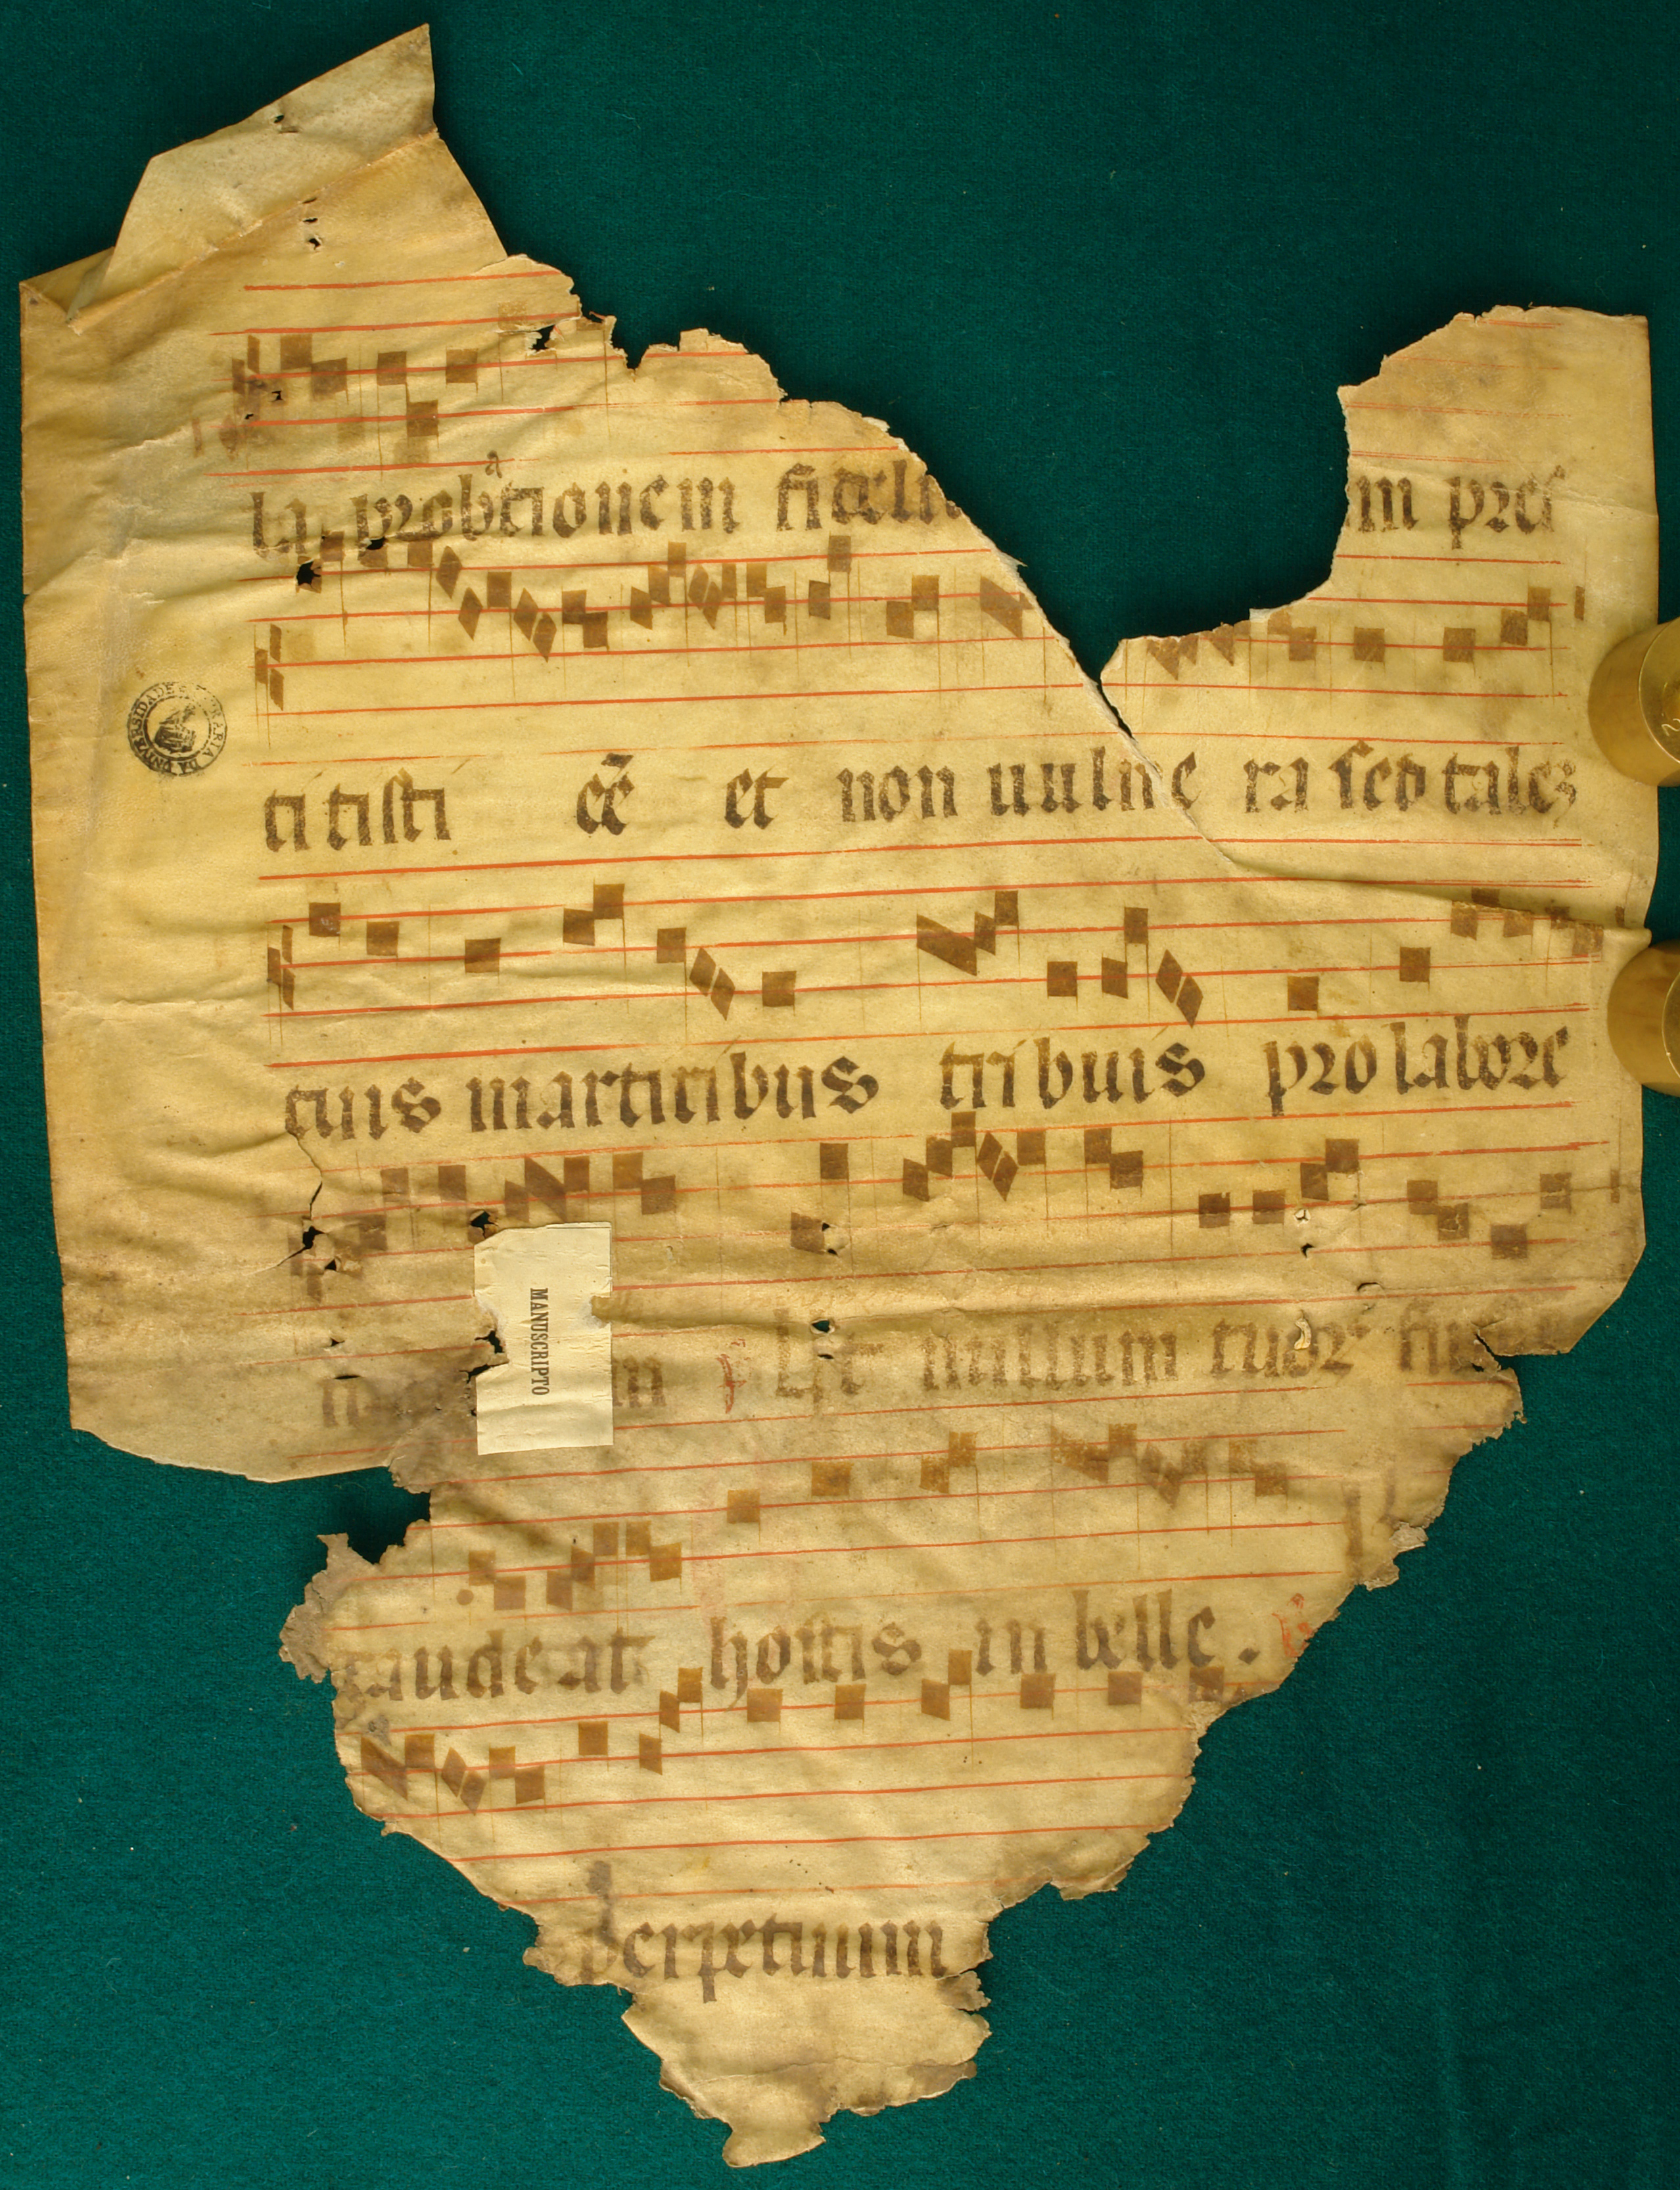 la probationem fideli m pres
titisti ee̅ et non uulnera sed tales
tuis martiribus tribuis pro labore
m Ut nullum tuor
audeat hostis in belle.
perpetuum
MANUSCRIPTO